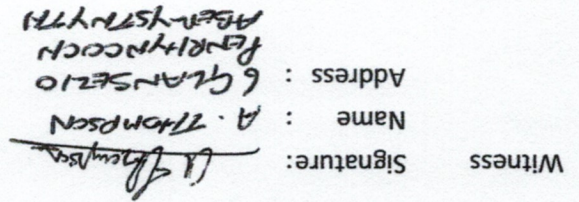 Witness Signature: A Thompson
Name : A. THOMPSON
Address : 6 GLANSEILO
PENRHYNCOCH
ABERYSTWYTH